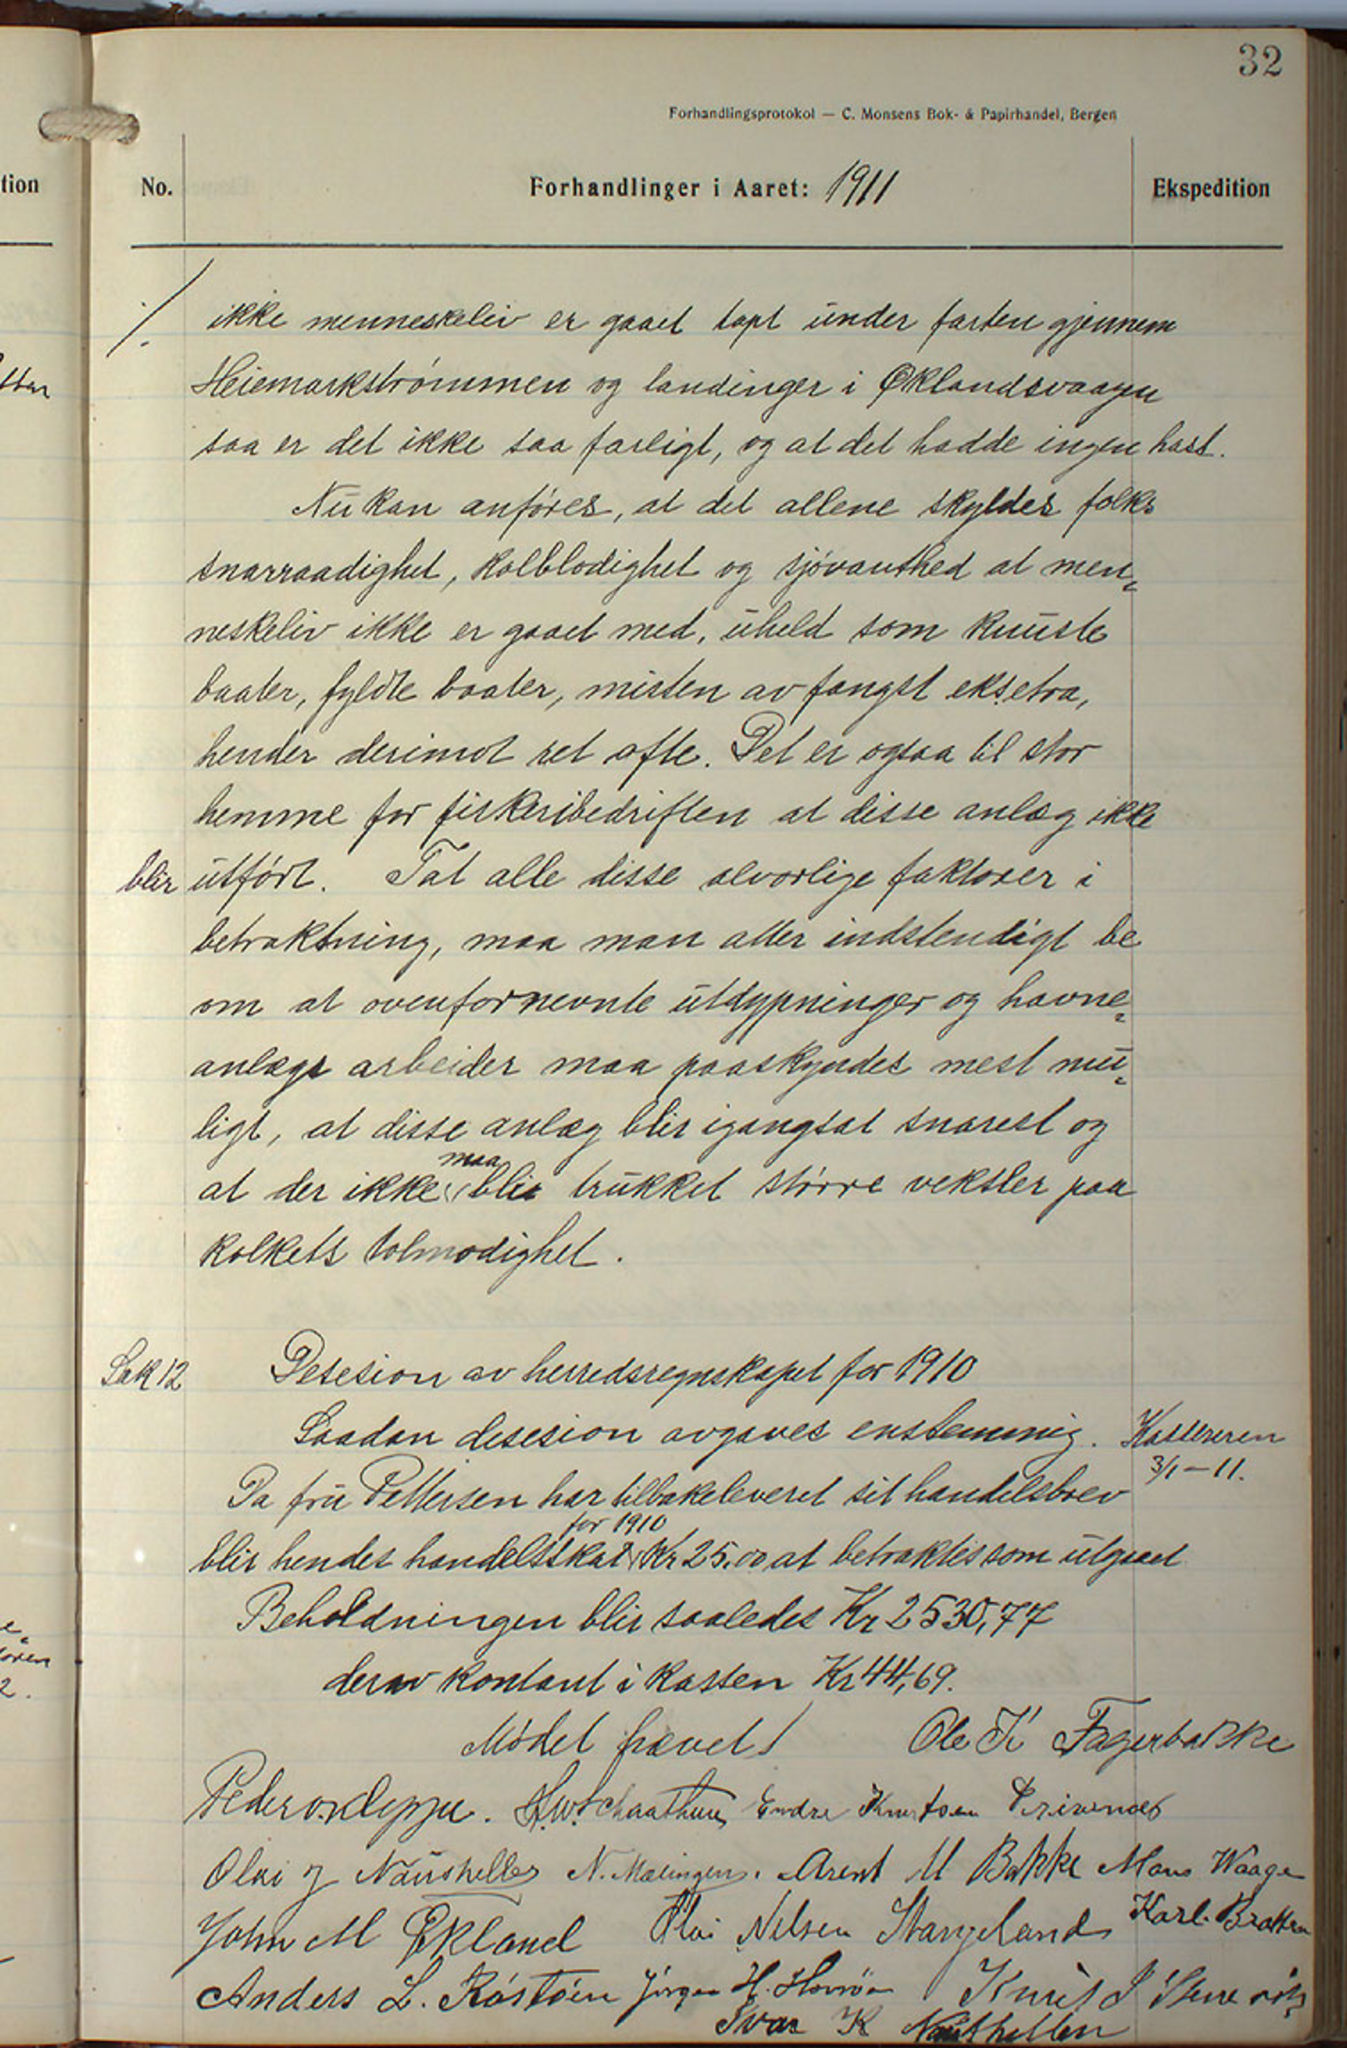 32
Forhandlingsprotokol — C. Monsens Bok- & Papirhandel, Bergen
tion
No.
Forhandlinger i Aaret: 1911
Ekspedition
./. ikke menneskeliv er gaaet tapt under farten gjennem
Heiemarkstrømmen og landinger i Øklandsvaagen
saa er det ikke saa farligt, og at det hadde ingen hast.
Nu kan anføres, at det allene skyldes folks
snarraadighet, kolblodighet og sjøvanthed at men-
neskeliv ikke er gaaet med, uheld som knuste
baater, fyldte baater, misten av fangst eksetra,
hender derimot ret ofte. Det er ogsaa til stor
hemme for fiskeribedriften at disse anlæg ikke
blir utført. Tat alle disse alvorlige faktorer i
betraktning, maa man atter indstendigt be
om at ovenfornevnte utdypninger og havne-
anlægs arbeider maa paaskyndes mest mu-
ligt, at disse anlæg blir igangsat snarest og
maa
at der ikke blir trukket større veksler paa
kolkets tolmodighet.
Sak 12
Desesion av herredsregnskapet for 1910
Saadan desesion avgaves enstemmig.
Kassereren
3/1-11.
Da fru Pettersen har tilbakeleveret sit handelsbrev
for 1910
blir hendes handelsskat Kr 25,00 at betraktes som utgaaet
Beholdningen blir saaledes Kr 2530,77
derav kontant i kassen Kr 44,69.
Mødet hævet!
Ole K Fagerbakke
Endre Knutsen
N. Mælingen. Arent M Bakke Mons Waage
John M Økland Olai Nilsen Stangeland Karl Bratten
Anders L. Røstøen Jørgen H. Hovsøe Knut J
Ivar K Nauthellen